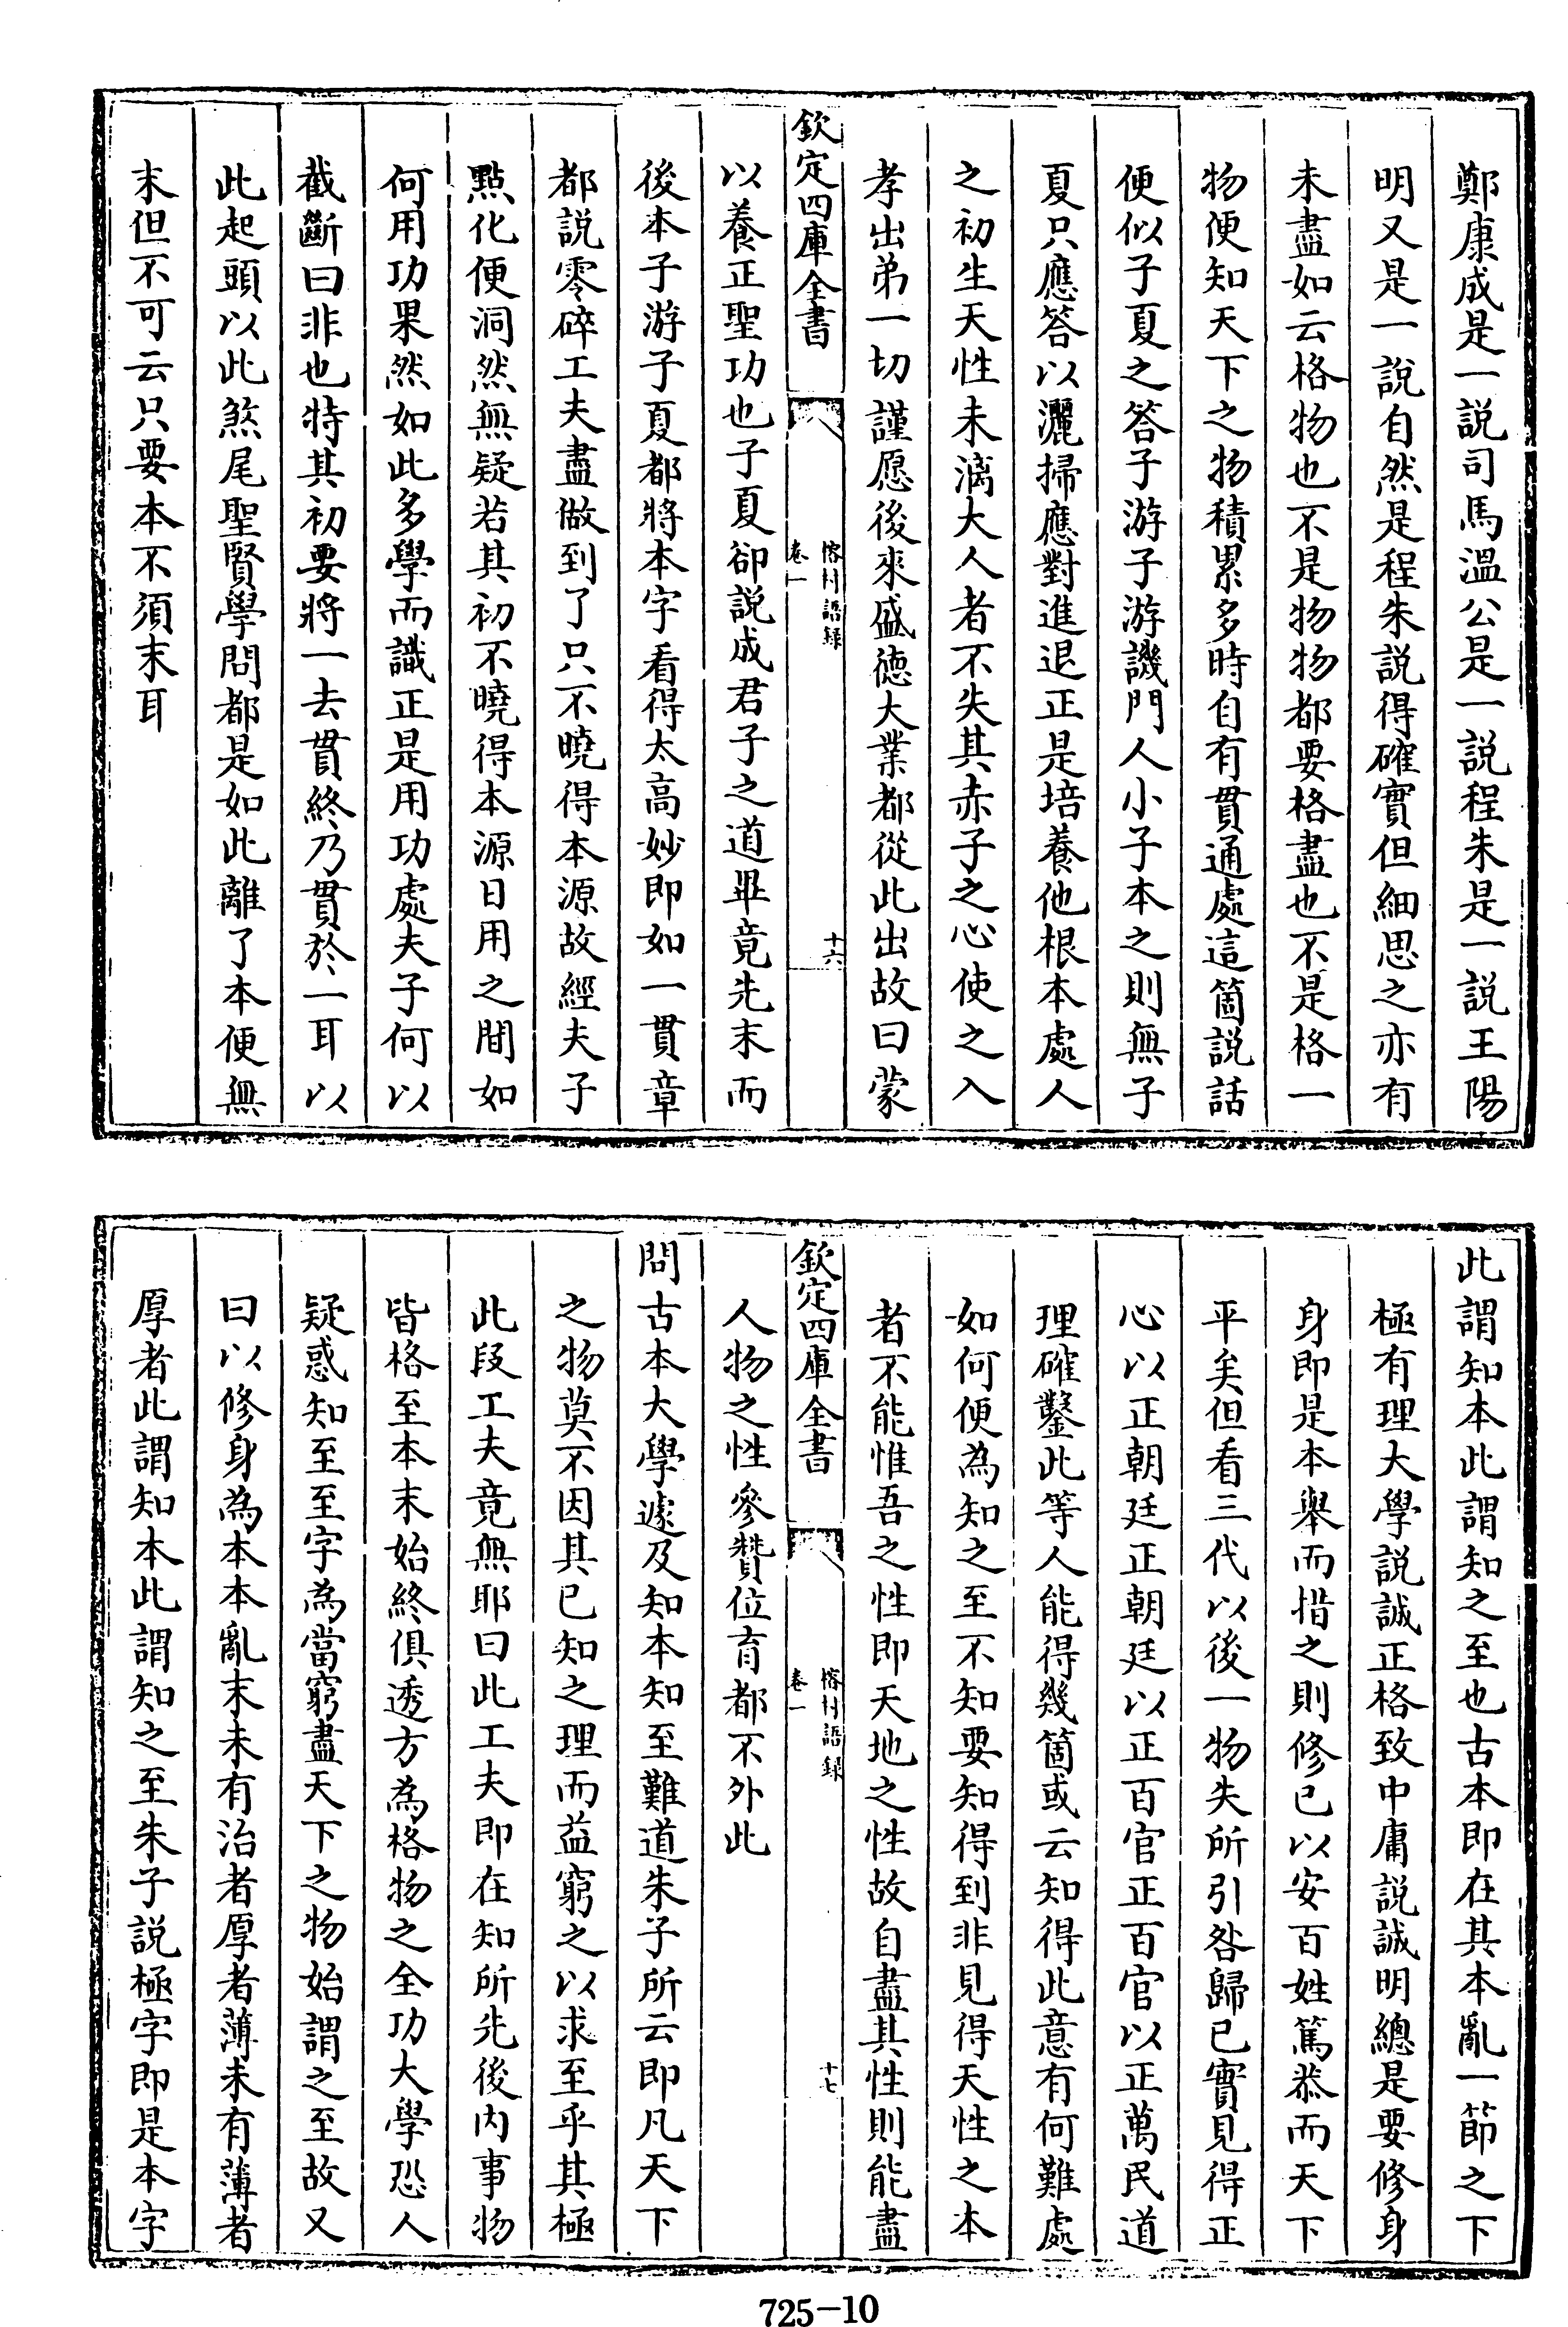 鄭康成是一説司馬溫公是一説程朱是一説王陽
明又是一説自然是程朱説得確實但細思之亦有
未盡如云格物也不是物物都要格盡也不是格一
物便知天下之物積累多時自有貫通處這箇説話
便似子夏之答子游子游譏門人小子本之則無子
夏只應答以灑掃應對進退正是培養他根本處人
之初生天性未漓大人者不失其赤子之心使之入
孝出弟一切謹愿後來盛德大業都從此出故曰蒙
欽定四庫全書
榕村語録
卷一
十六
以養正聖功也子夏卻説成君子之道畢竟先末而
後本子游子夏都將本字看得太高妙即如一貫章
都説零碎工夫盡做到了只不曉得本源故經夫子
點化便洞然無疑若其初不曉得本源日用之間如
何用功果然如此多學而識正是用功處夫子何以
截斷曰非也特其初要將一去貫終乃貫於一耳以
此起頭以此煞尾聖賢學問都是如此離了本便無
末但不可云只要本不須末耳
此謂知本此謂知之至也古本即在其本亂一節之下
極有理大學説誠正格致中庸説誠明總是要修身
身即是本舉而措之則修己以安百姓篤恭而天下
平矣但看三代以後一物失所引咎歸己實見得正
心以正朝廷正朝廷以正百官正百官以正萬民道
理確鑿此等人能得幾箇或云知得此意有何難處
如何便為知之至不知要知得到非見得天性之本
者不能惟吾之性即天地之性故自盡其性則能盡
欽定四庫全書
榕村語録
卷一
十七
人物之性參贊位育都不外此
問古本大學遽及知本知至難道朱子所云即凡天下
之物莫不因其已知之理而益窮之以求至乎其極
此段工夫竟無耶曰此工夫即在知所先後內事物
皆格至本末始終俱透方為格物之全功大學恐人
疑惑知至至字為當窮盡天下之物始謂之至故又
曰以修身為本本亂末未有治者厚者薄未有薄者
厚者此謂知本此謂知之至朱子説極字即是本字
725-10